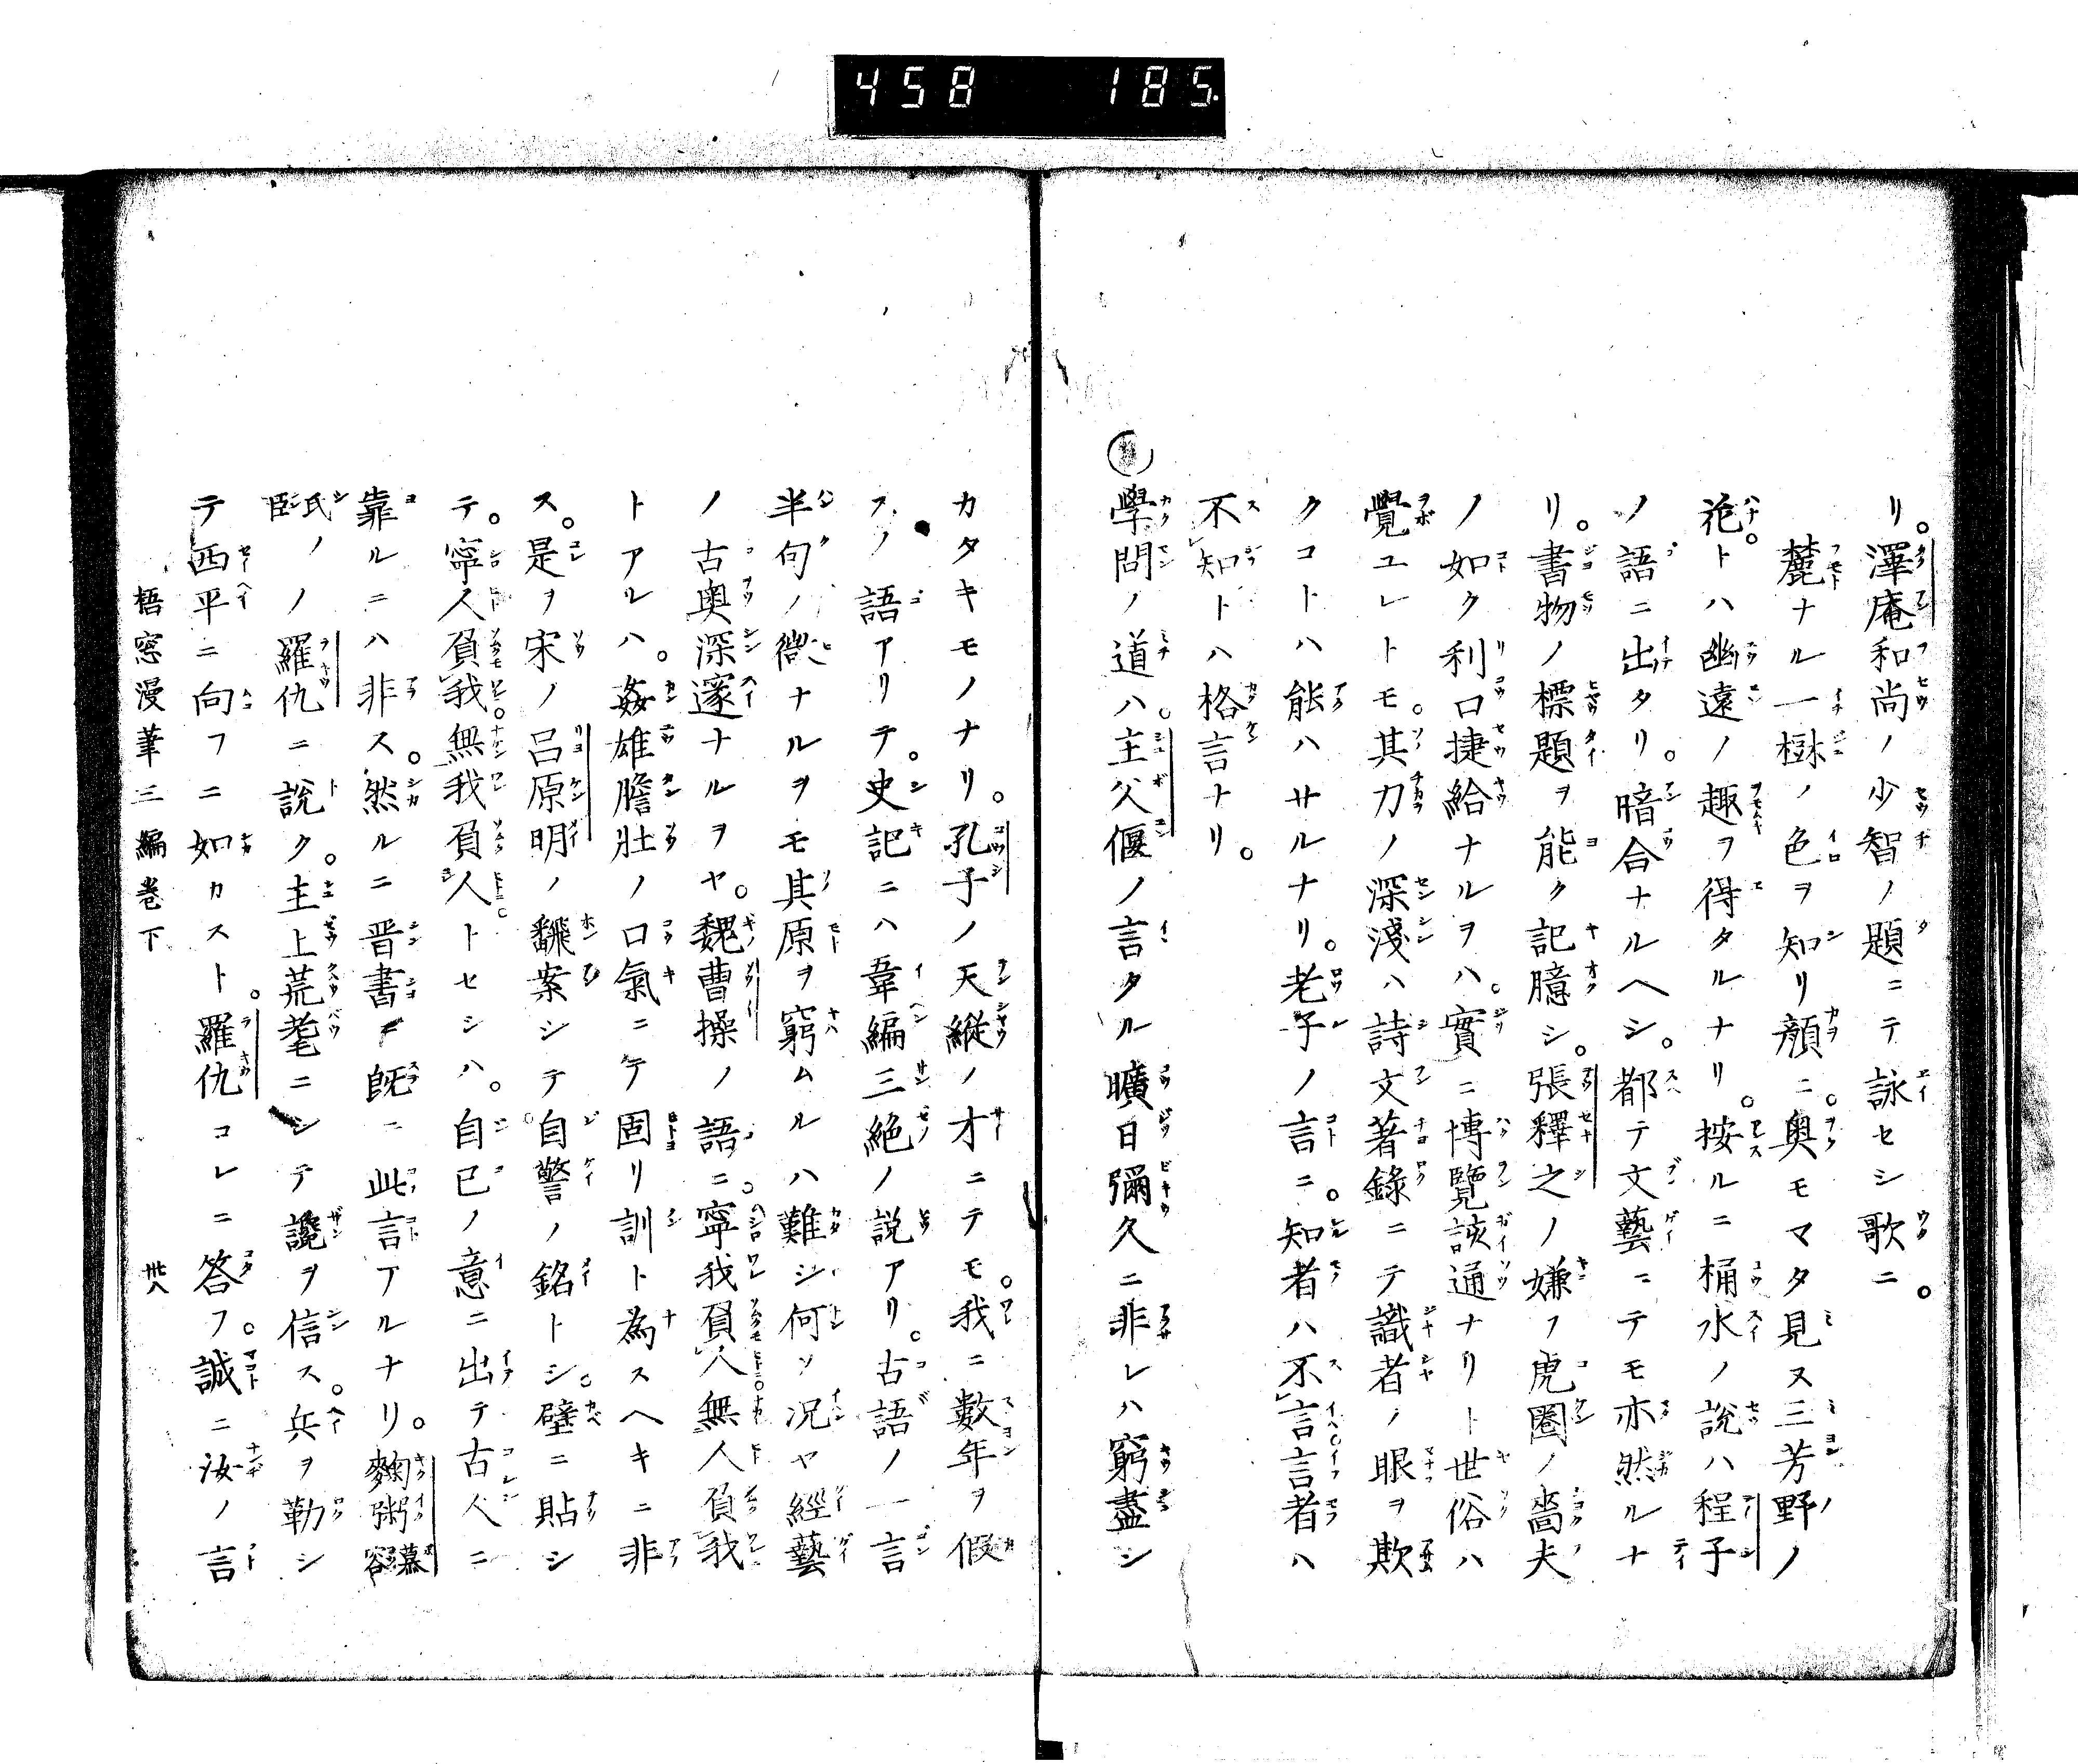 458 185
リ。澤庵和尚ノ少智ノ題ニテ詠セシ歌ニ。
麓ナル一樹ノ色ヲ知リ顔ニ。奥モマタ見ヌ三芳野ノ
花。トハ幽遠ノ趣ヲ得タルナリ。按ルニ桶水ノ說ハ程子
ノ語ニ出タリ。暗合ナルヘシ。都テ文藝ニテモ亦然ルナ
リ。書物ノ標題ヲ能ク記臆シ。張釋之ノ嫌フ虎圈ノ嗇夫
ノ如ク利口捷給ナルヲハ。實ニ博覽該通ナリト世俗ハ
覺ユレトモ。其力ノ深淺ハ詩文著錄ニテ識者ノ眼ヲ欺
クコトハ能ハサルナリ。老子ノ言ニ。知者ハ不言言者ハ
不知トハ格言ナリ。
學問ノ道ハ。主父偃ノ言タル曠日彌久ニ非レハ窮盡シ
カタキモノナリ。孔子ノ天縱ノ才ニテモ。我ニ數年ヲ假
スノ語アリテ。史記ニハ韋編三絶ノ説アリ。古語ノ一言
半句ノ微ナルヲモ其原ヲ窮ムルハ難シ何ソ況ヤ經藝
ノ古奥深邃ナルヲヤ。魏曹操ノ語ニ。寧我負人無人負我
トアルハ。姦雄膽壯ノ口氣ニテ固リ訓ト為スヘキニ非
ス。是ヲ宋ノ呂原明ノ飜案シテ自警ノ銘トシ。壁ニ貼シ
テ。寧人負我無我負人トセシハ。自已ノ意ニ出テ古人ニ
靠ルニハ非ス。然ルニ晋書ニ既ニ此言アルナリ。麴粥慕容
氏ノ臣ノ羅仇ニ說ク。主上荒耄ニシテ讒ヲ信ス。兵ヲ勒シ
テ西平ニ向フニ如カスト。羅仇コレニ答フ。誠ニ汝ノ言
梧窓漫筆三編卷下 卅八